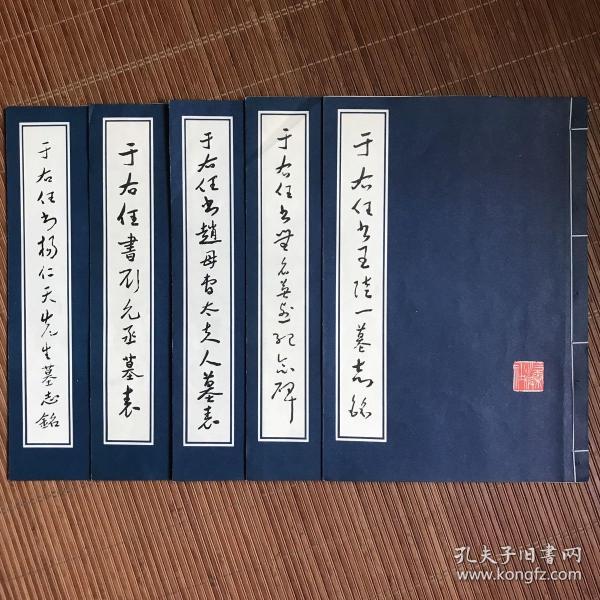 于右任书王陸一墓志銘
于右任书無名英雄紀念碑
于右任书趙母曹太夫人墓表
于右任書允丞墓表
于右任书楊仁天先生墓志銘
孔夫子旧书网
www.kongfz.com